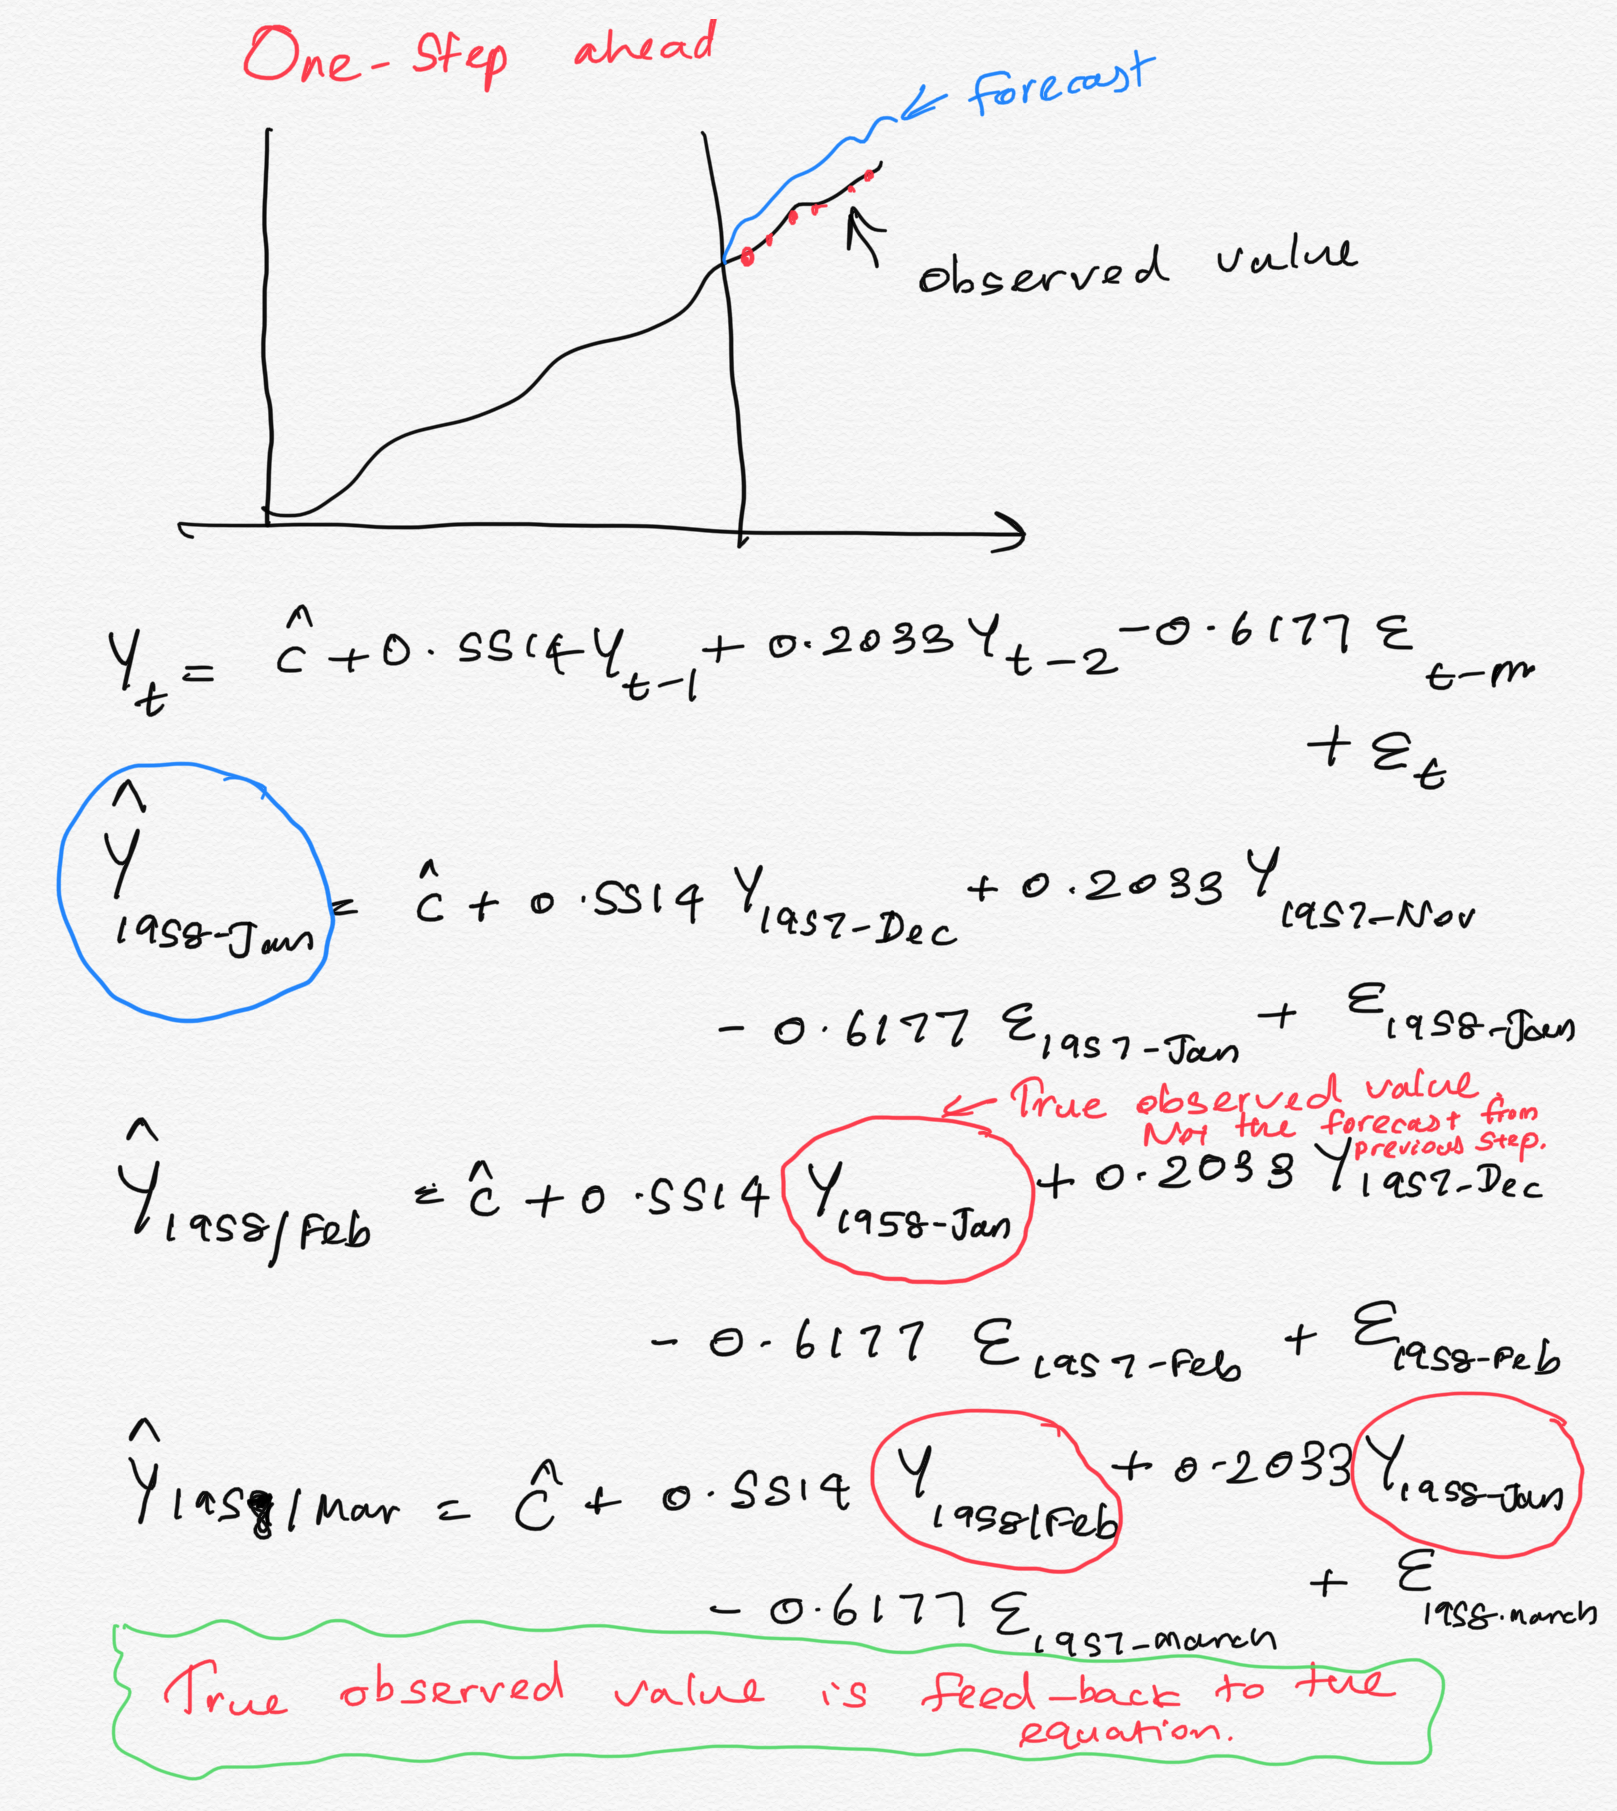 One-Step ahead
forecast
observed value
Y_t = ĉ + 0.5514 Y_{t-1} + 0.2033 Y_{t-2} - 0.6177 ε_{t-m}
+ ε_t
Ŷ_{1958-Jan} = ĉ + 0.5514 Y_{1957-Dec} + 0.2033 Y_{1957-Nov}
- 0.6177 ε_{1957-Jan} + ε_{1958-Jan}
True observed value.
Not the forecast from
previous step.
Ŷ_{1958/Feb} = ĉ + 0.5514 Y_{1958-Jan} + 0.2033 Y_{1957-Dec}
- 0.6177 ε_{1957-Feb} + ε_{1958-Feb}
Ŷ_{1958/Mar} = ĉ + 0.5514 Y_{1958/Feb} + 0.2033 Y_{1958-Jan}
- 0.6177 ε_{1957-march} + ε_{1958-march}
True observed value is feed-back to the
equation.